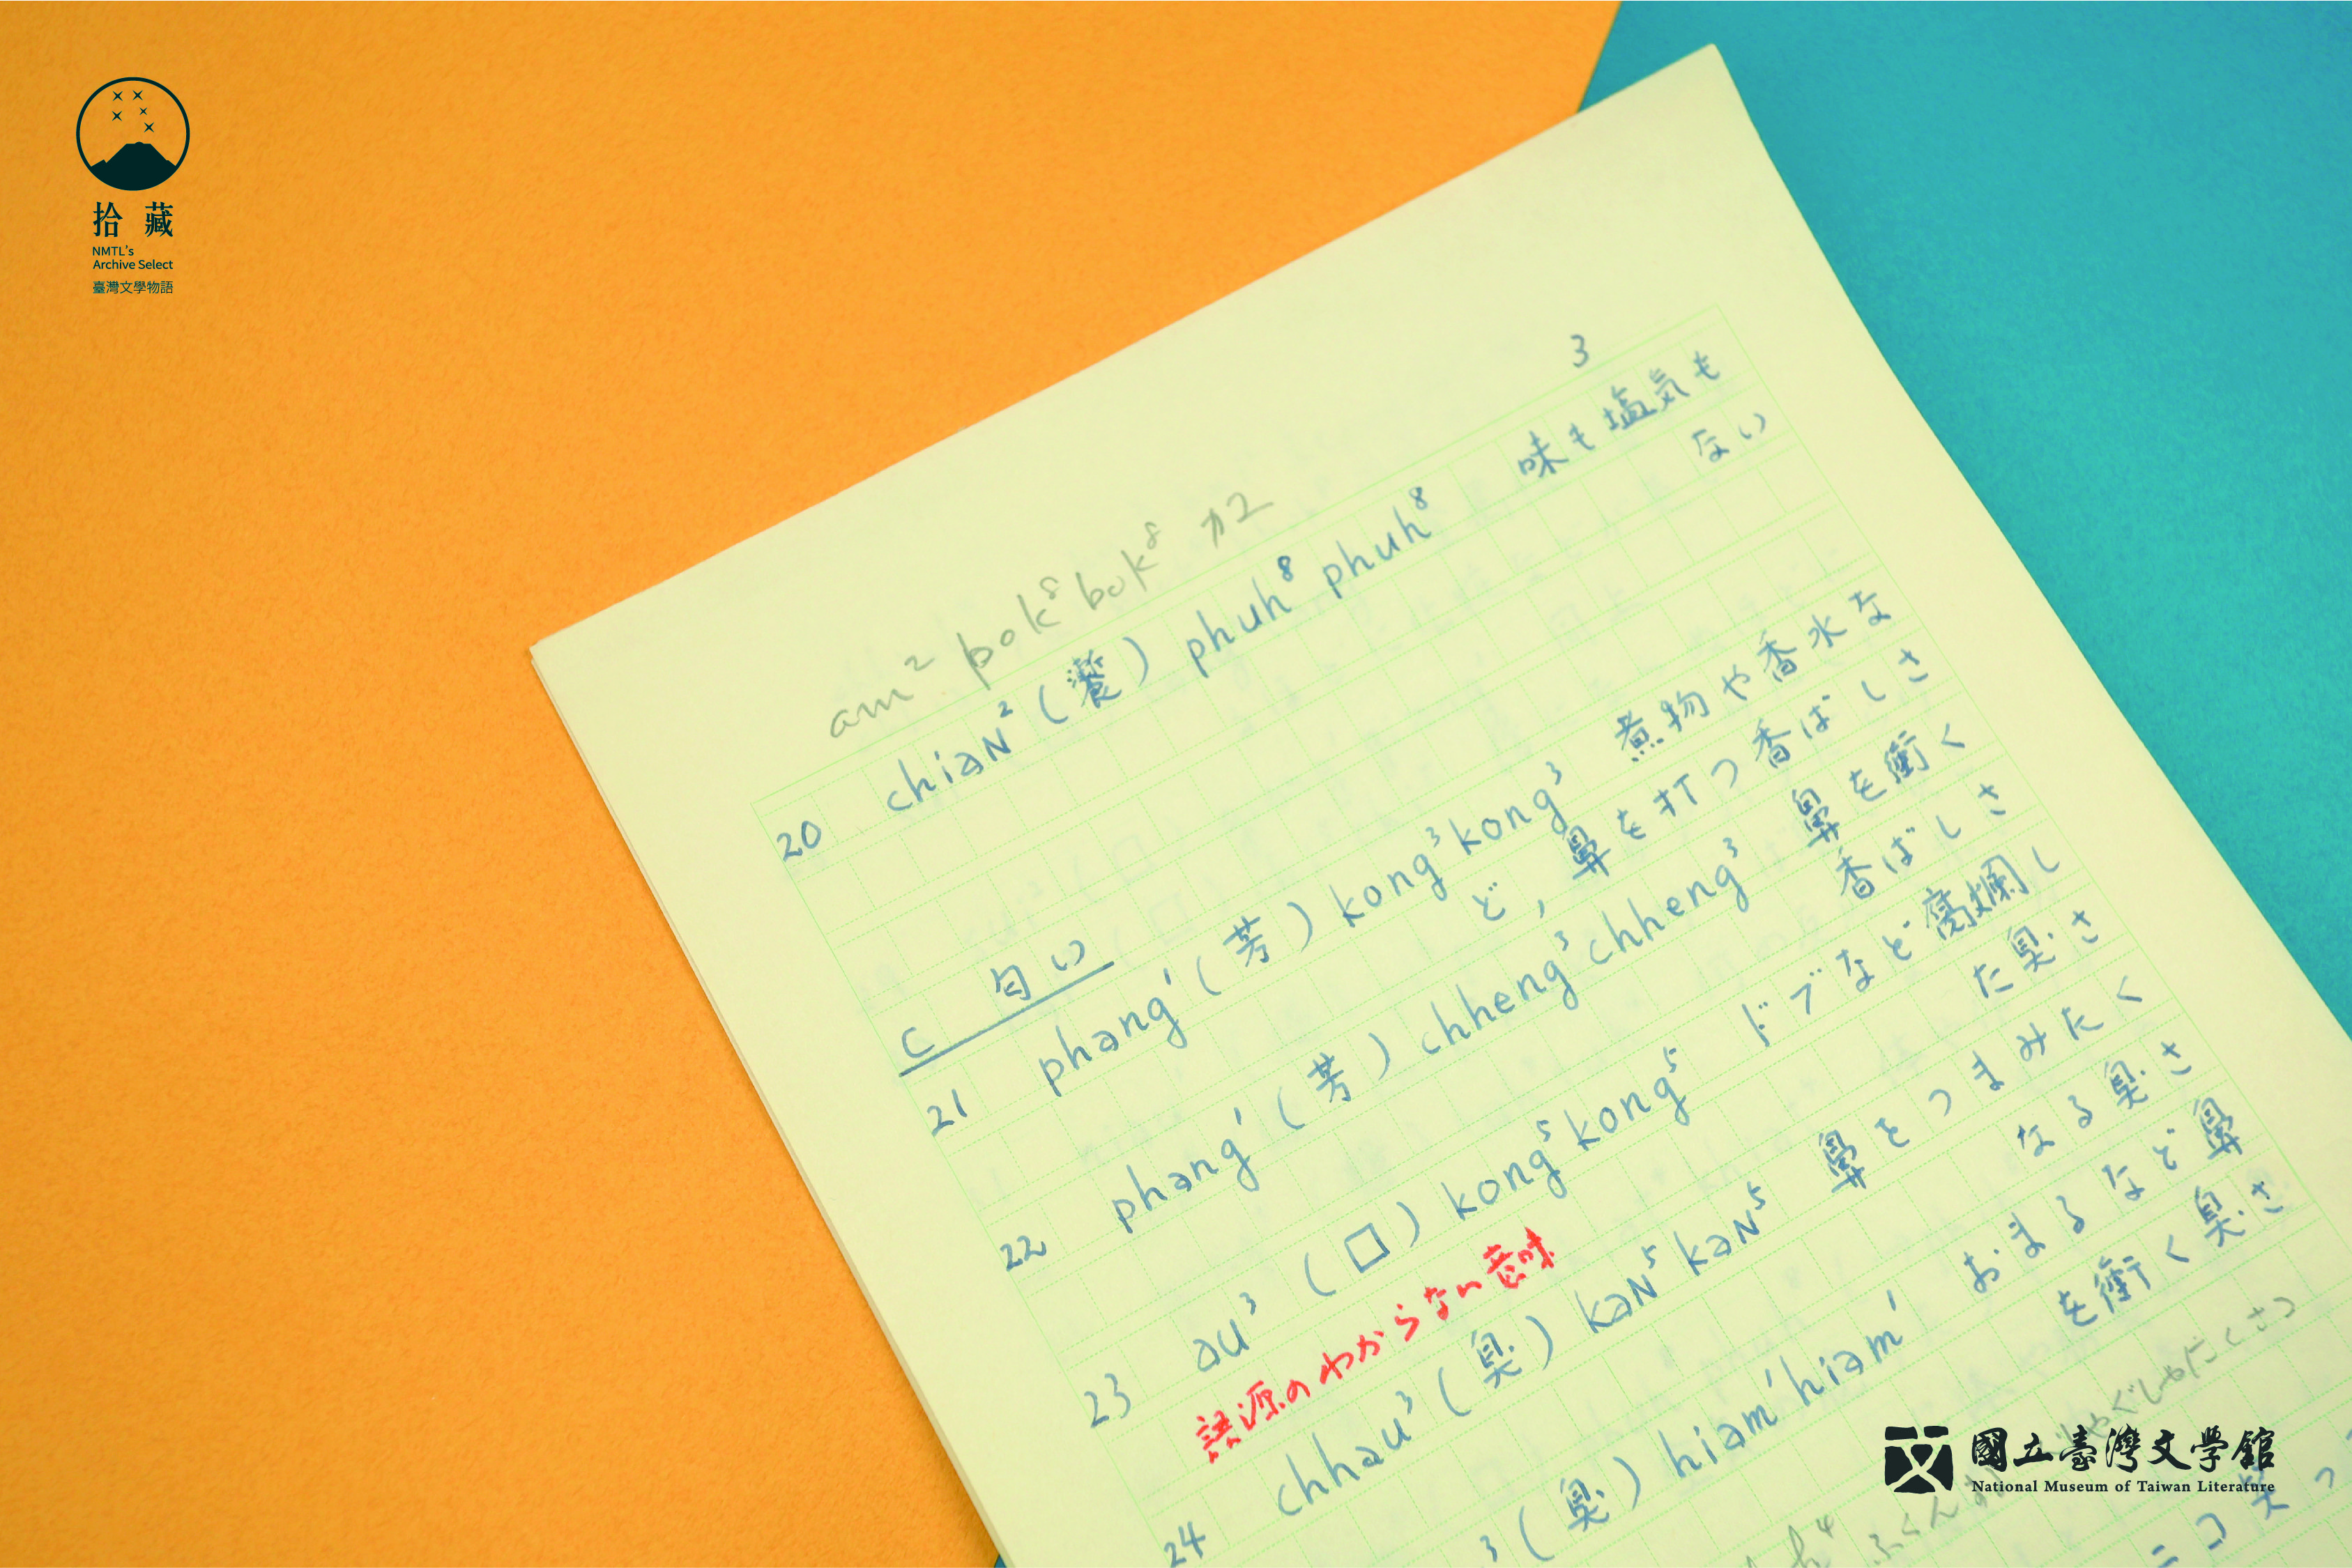 拾藏
NMTL's
Archive Select
臺灣文學物語
3
am² bok⁸ bok⁸
20 chiaN² (饗) phuh⁸ phuh⁸ 味も塩気も
ない
C 匂い
21 phang¹ (芳) kong³ kong³ 煮物や香水な
ど，鼻を打つ香ばしさ
22 phang¹ (芳) chheng³ chheng³ 鼻を衝く
香ばしさ
23 au³ (□) kong⁵ kong⁵ ドブなど腐爛し
た臭さ
語源のわからない意味
24 chhau³ (臭) kaN⁵ kaN⁵ 鼻をつまみたく
なる臭さ
³ (臭) hiam¹ hiam¹ おまるなど鼻
を衝く臭さ
國立臺灣文學館
National Museum of Taiwan Literature